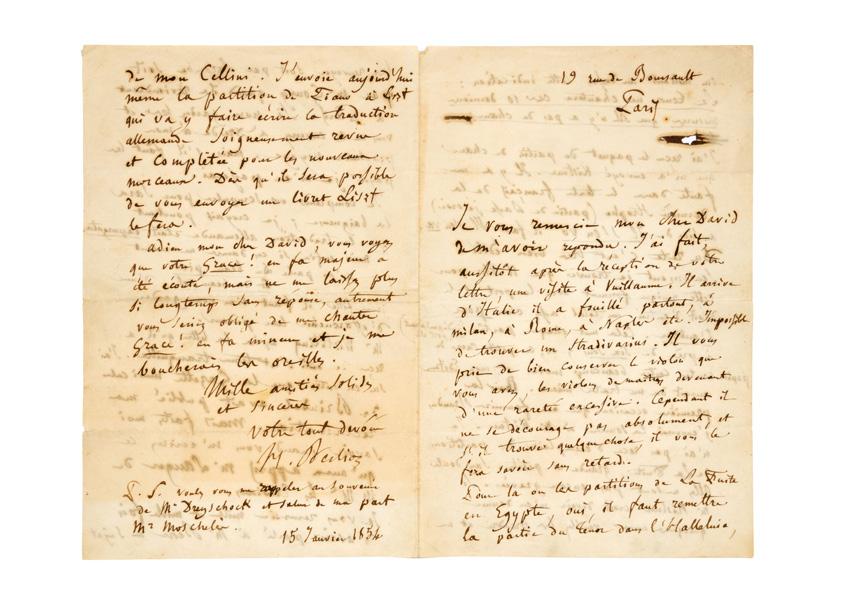 de mon Cellini. J'envoie aujourd'hui
même la partition de Piano à Liszt
qui va y faire écrire la traduction
allemande soigneusement revue
et complétée pour les nouveaux
morceaux. Dès qu'il sera possible
de vous envoyer un livret Liszt
le fera.
adieu mon cher David, vous voyez
que votre Grace! en fa majeur a
été écouté mais ne me laissez plus
si longtemps sans réponse, autrement
vous seriez obligé de me chanter
Grace! en fa mineur et je me
boucherais les oreilles.
Mille amitiés solides
et sincères
votre tout dévoué
H. Berlioz
P. S. voulez vous me rappeler au souvenir
de Mr Dreyschock et saluer de ma part
Mr Moscheles.
15 Janvier 1854
19 rue de Boursault
Paris
Je vous remercie mon cher David
de m'avoir répondu. J'ai fait,
aussitôt après la réception de votre
lettre, une visite à Vuillaume. Il arrive
d'Italie il a fouillé partout, à
milan, à Rome, à Naples etc. Impossible
de trouver un Stradivarius. Il vous
prie de bien conserver le violon que
vous avez, les violons de maîtres devenant
d'une rareté excessive. Cependant il
ne se décourage pas absolument, et
s'il trouve quelque chose, il vous le
fera savoir sans retard.
Pour la ou les partitions de La Fuite
en Egypte, oui, il faut remettre
la partie du tenor dans l'Halleluia,